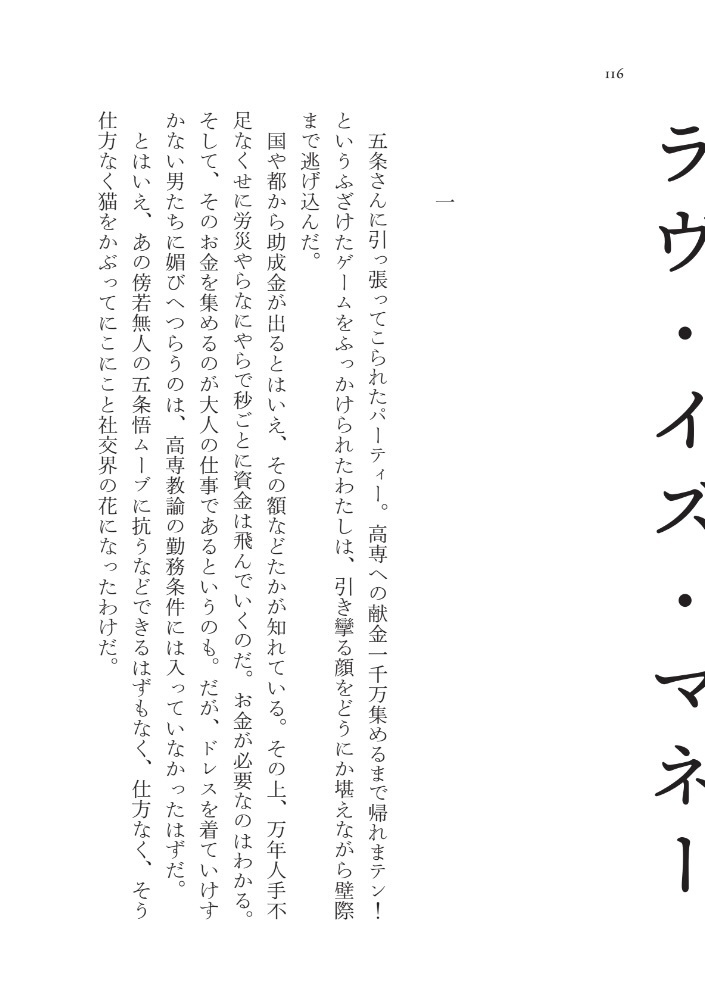 116
ラヴ・イズ・マネー
一
五条さんに引っ張ってこられたパーティー。高専への献金一千万集めるまで帰れまテン！
というふざけたゲームをふっかけられたわたしは、引き攣る顔をどうにか堪えながら壁際
まで逃げ込んだ。
国や都から助成金が出るとはいえ、その額などたかが知れている。その上、万年人手不
足なくせに労災やらなにやらで秒ごとに資金は飛んでいくのだ。お金が必要なのはわかる。
そして、そのお金を集めるのが大人の仕事であるというのも。だが、ドレスを着ていけす
かない男たちに媚びへつらうのは、高専教諭の勤務条件には入っていなかったはずだ。
とはいえ、あの傍若無人の五条悟ムーブに抗うなどできるはずもなく、仕方なく、そう
仕方なく猫をかぶってにこにこと社交界の花になったわけだ。